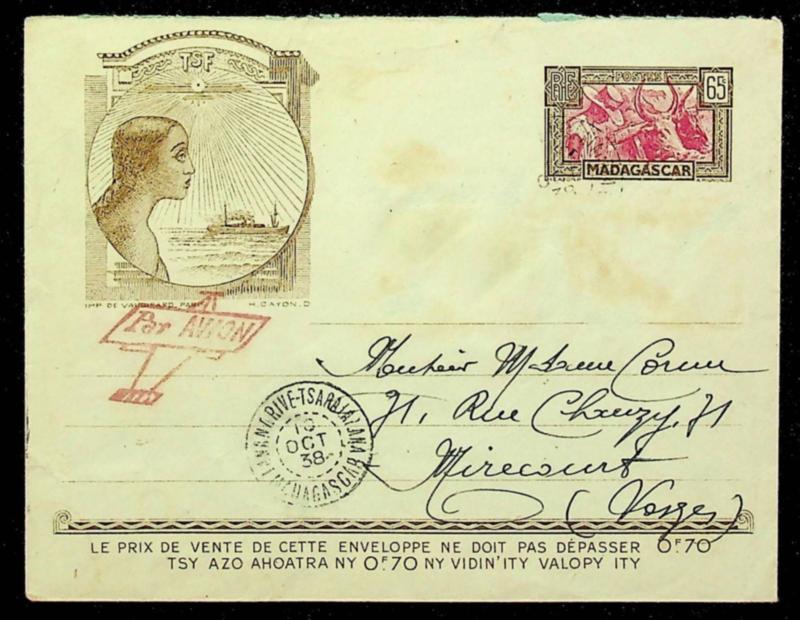 TSF
RF POSTES 65c
MADAGASCAR
IMP. DE VAUGIRARD, PARIS H. CAYON. D
Par AVION
TANANARIVE-TSARALALANA
10
OCT
38
MADAGASCAR
Monsieur Madame Cornu
71, Rue Chanzy, 71
Mirecourt
(Vosges)
LE PRIX DE VENTE DE CETTE ENVELOPPE NE DOIT PAS DÉPASSER 0F.70
TSY AZO AHOATRA NY 0F.70 NY VIDIN'ITY VALOPY ITY